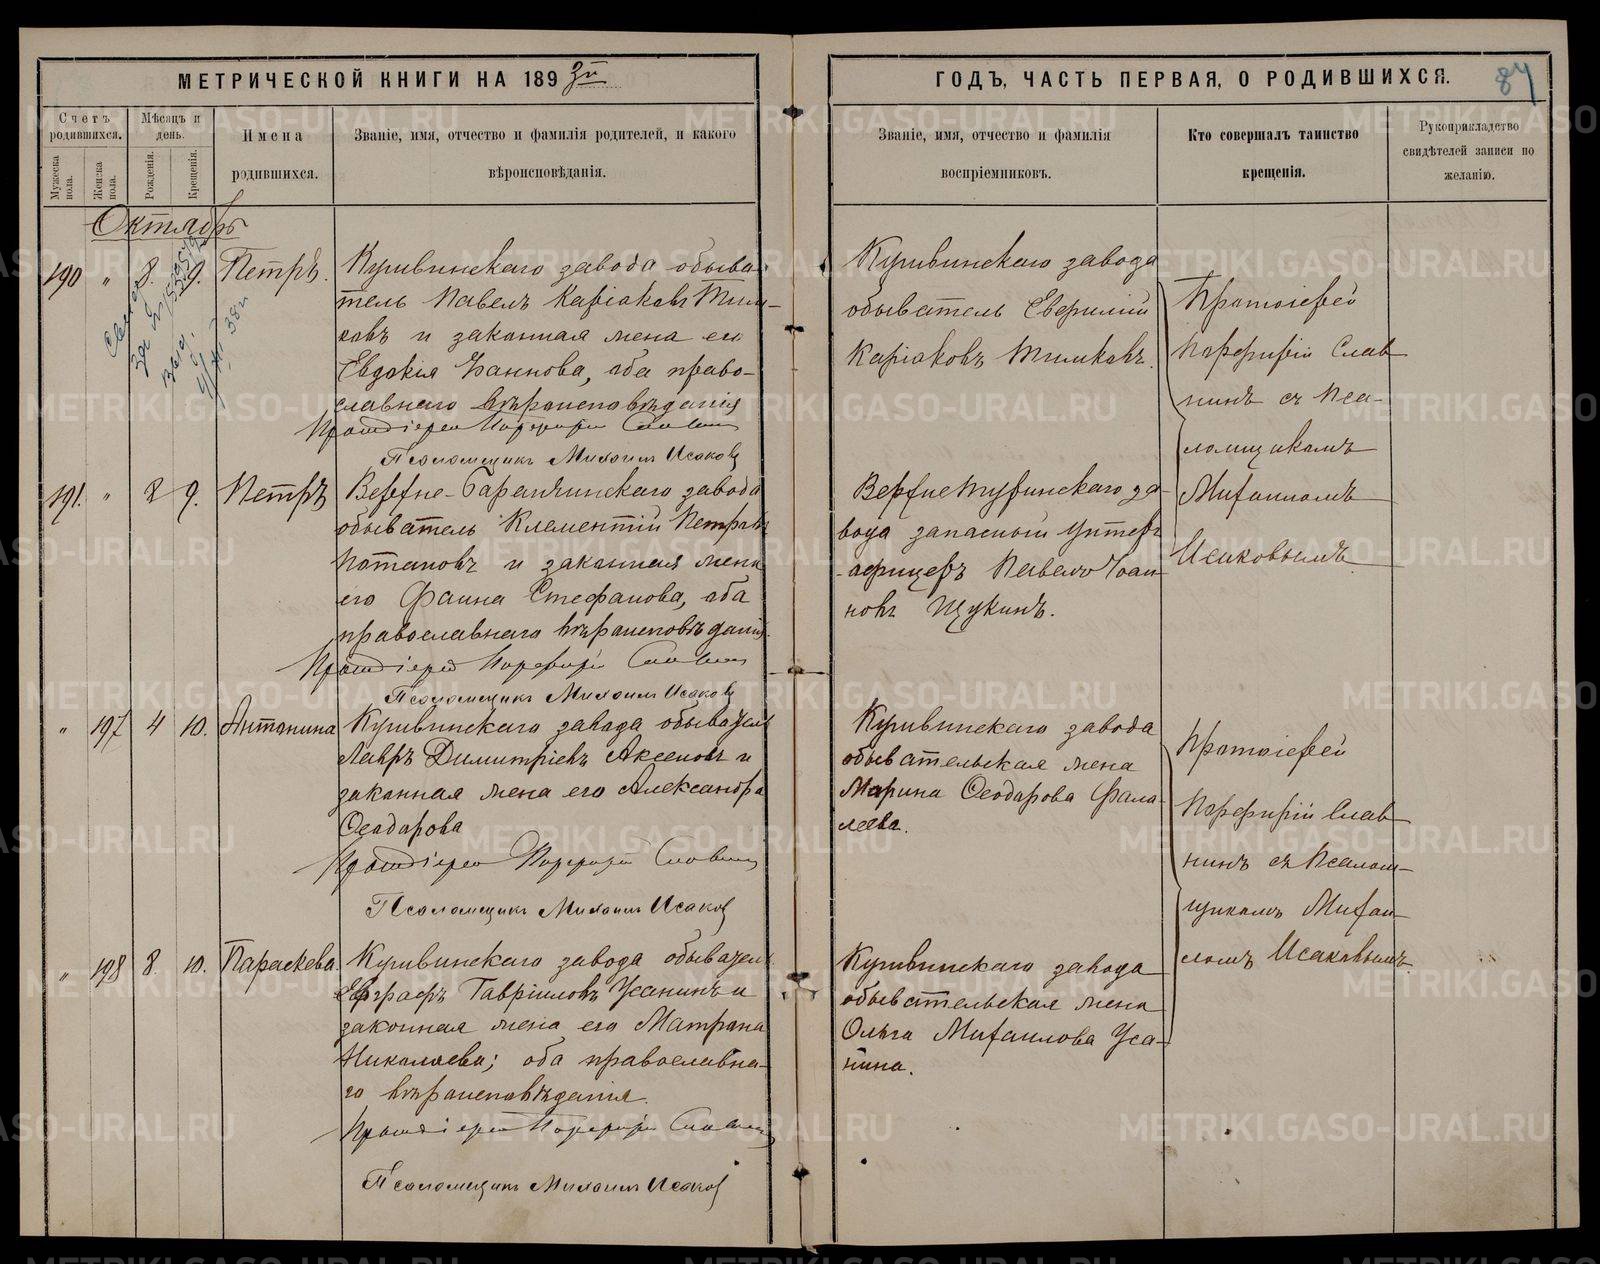 МЕТРИЧЕСКОЙ КНИГИ НА 1893й
ГОДЪ, ЧАСТЬ ПЕРВАЯ, О РОДИВШИХСЯ.
87
Счетъ родившихся.
Мужеска пола.
Женска пола.
Мѣсяцъ и день.
Рожденія.
Крещенія.
Имена
родившихся.
Званіе, имя, отчество и фамилія родителей, и какого
вѣроисповѣданія.
Званіе, имя, отчество и фамилія
воспріемниковъ.
Кто совершалъ таинство
крещенія.
Рукоприкладство
свидѣтелей записи по
желанію.
Октябрь
190 " 8. 9. Петръ.
Кушвинскаго завода обыва-
тель Павелъ Каріоковъ Тим-
ковъ и законная жена его
Евдокія Іоаннова, оба право-
славнаго вѣроисповѣданія
Протоіерей Порфирій Славнинъ
Псаломщикъ Михаилъ Исаковъ
Кушвинскаго завода
обыватель
Протоіерей
Порфирій Слав
нинъ съ Пса-
ломщикомъ
Михаиломъ
Исаковымъ
191. " 8 9. Петръ
Верхне-Баранчинскаго завода
обыватель Климентій Петровъ
Потаповъ и законная жена
его Фаина Стефанова, оба
православнаго вѣроисповѣданія.
Протоіерей Порфирій Славнинъ
Псаломщикъ Михаилъ Исаковъ
ВерхнеТуринскаго за-
вода запасный унтеръ
-офицеръ Павелъ Іоан-
новъ Щукинъ.
" 197 4 10. Антонина
Кушвинскаго завода обыватель
Лавръ Димитріевъ Аксеновъ и
законная жена его Александра
Ѳеодорова
Протоіерей Порфирій Славнинъ
Псаломщикъ Михаилъ Исаковъ
Кушвинскаго завода
обывательская жена
Марина Ѳеодорова Фала-
леева.
Протоіерей
Порфирій Слав
нинъ съ Псалом-
щикомъ Михаи-
ломъ Исаковымъ.
" 198 8. 10. Параскева
Кушвинскаго завода обыватель
Евграфъ Гавріиловъ Усанинъ и
законная жена его Матрона
Николаева; оба православна-
го вѣроисповѣданія.
Протоіерей Порфирій Славнинъ
Псаломщикъ Михаилъ Исаковъ
Кушвинскаго завода
обывательская жена
Ольга Михаилова Уса-
нина.
METRIKI.GASO-URAL.RU